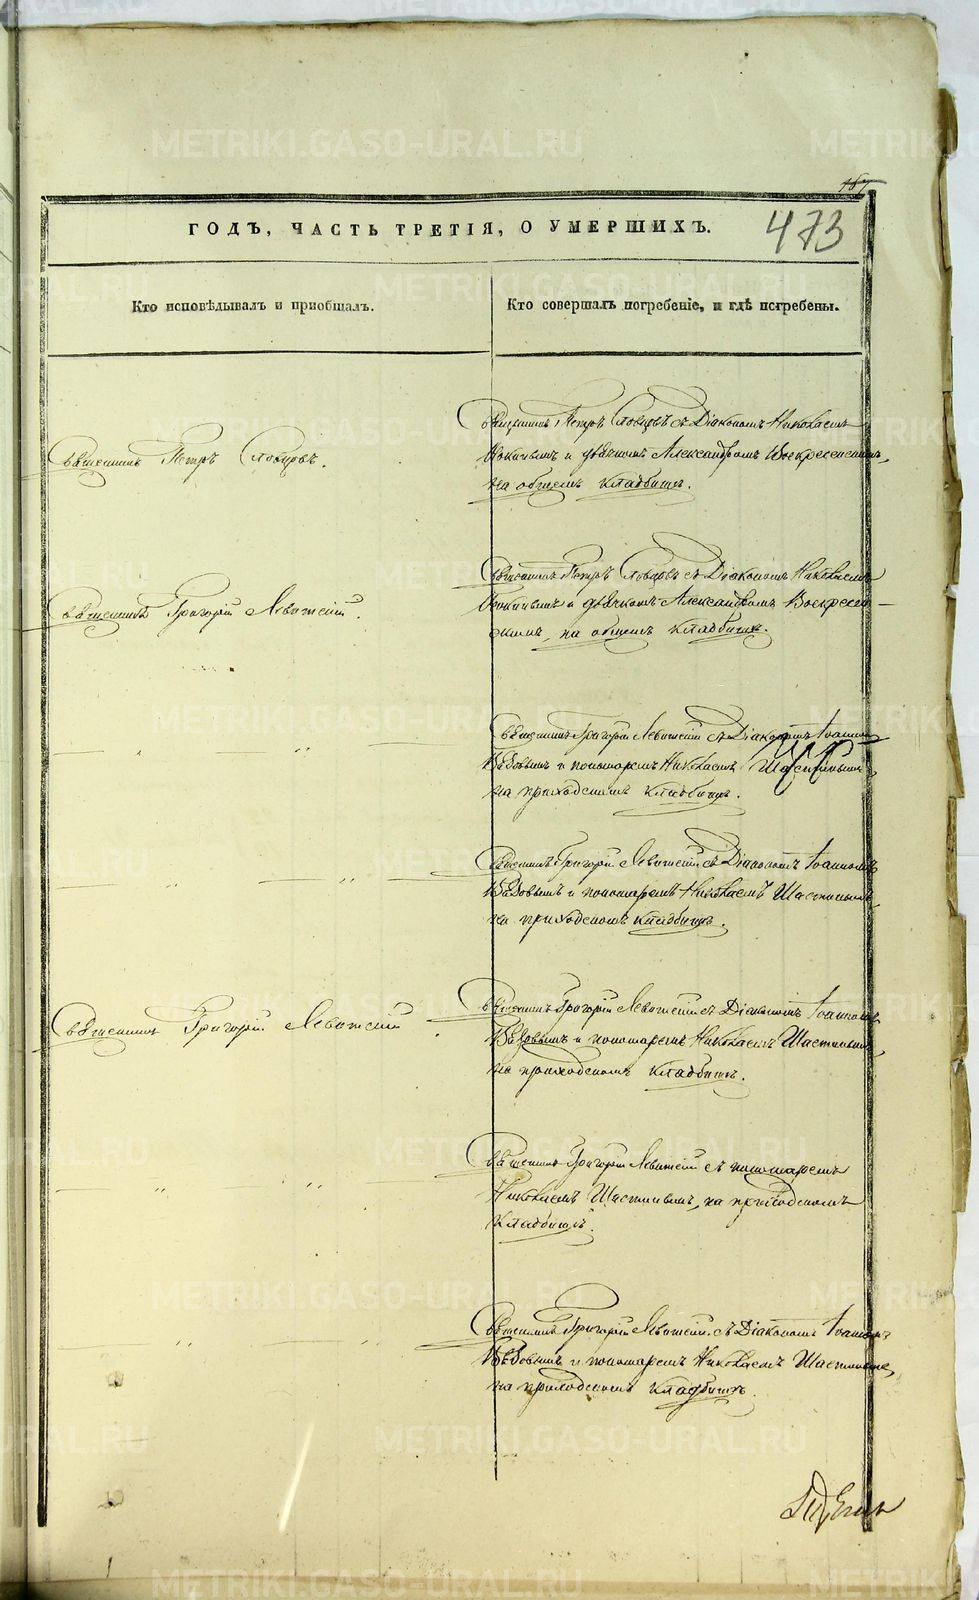 167
ГОДЪ, ЧАСТЬ ТРЕТІЯ, О УМЕРШИХЪ.
473
Кто исповѣдывалъ и пріобщалъ.
Кто совершалъ погребеніе, и гдѣ погребены.
Священникъ Петръ Словцовъ.
Священникъ Петръ Словцовъ съ Діакономъ Николаемъ
и дьячкомъ Александромъ Воскресенскимъ,
на общемъ кладбищѣ.
Священникъ Григорій Левитскій.
Священникъ Петръ Словцовъ съ Діакономъ Николаемъ
и дьячкомъ Александромъ Воскресен-
скимъ, на общемъ кладбищѣ.
„ „
Священникъ Григорій Левитскій съ Діакономъ Іоанномъ
и пономаремъ Николаемъ Шастинымъ,
на приходскомъ кладбищѣ.
„ „
Священникъ Григорій Левитскій съ Діакономъ Іоанномъ
и пономаремъ Николаемъ Шастинымъ,
на приходскомъ кладбищѣ.
Священникъ Григорій Левитскій
Священникъ Григорій Левитскій съ Діакономъ Іоанномъ
и пономаремъ Николаемъ Шастинымъ,
на приходскомъ кладбищѣ.
„ „
Священникъ Григорій Левитскій съ пономаремъ
Николаемъ Шастинымъ, на приходскомъ
кладбищѣ.
„ „
Священникъ Григорій Левитскій съ Діакономъ Іоанномъ
и пономаремъ Николаемъ Шастинымъ,
на приходскомъ кладбищѣ.
METRIKI.GASO-URAL.RU